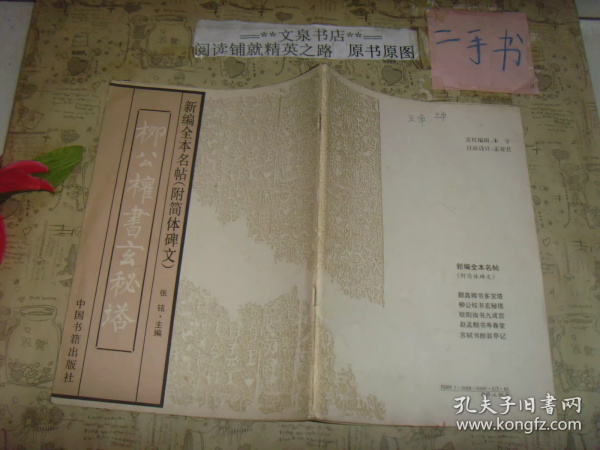 ==**文泉书店**==
阅读铺就精英之路 原书原图
二手书
新编全本名帖(附简体碑文)
柳公權書玄秘塔
张铭·主编
中国书籍出版社
新编全本名帖
(附简体碑文)
颜真卿书多宝塔
柳公权书玄秘塔
欧阳询书九成宫
赵孟頫书寿春堂
苏轼书醉翁亭记
孔夫子旧书网
www.kongfz.com